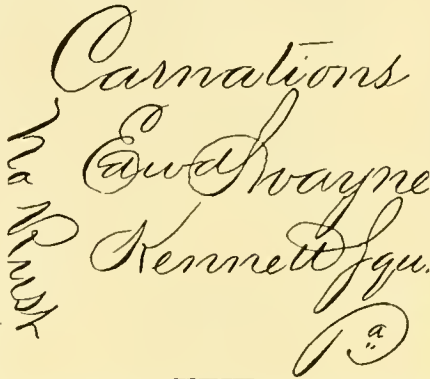 Carnations
Edwd Swayne
Kennett Squ.
Pa
No Rush